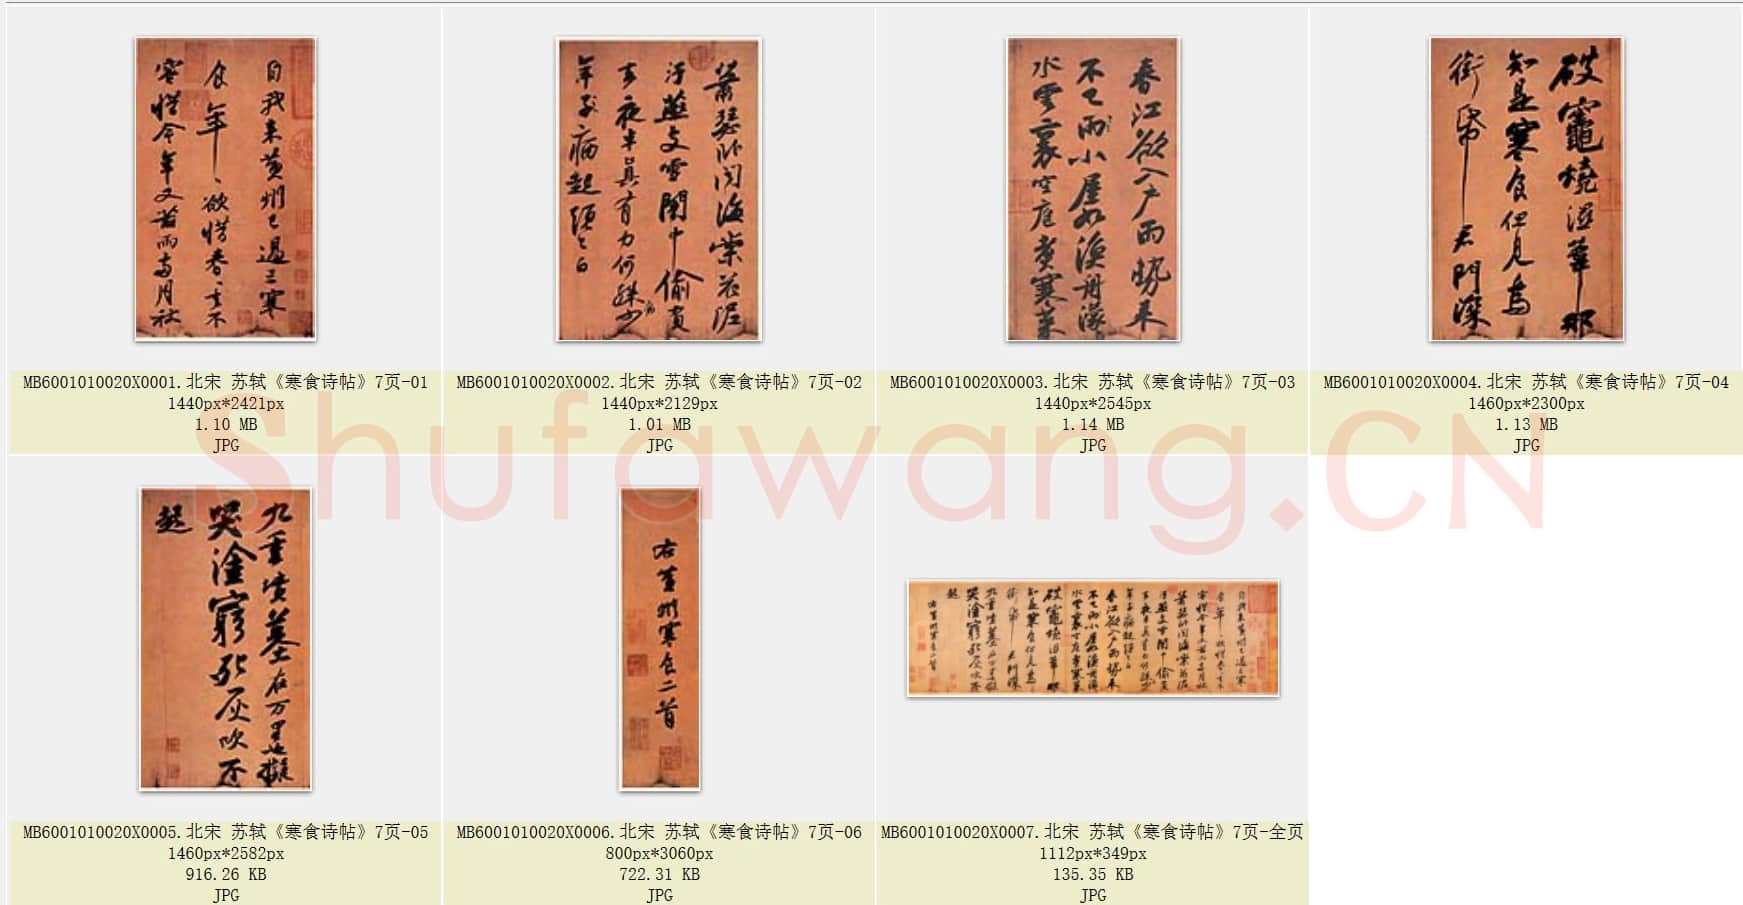 自我来黄州已過三寒
食年〻欲惜春〻去不
容惜今年又苦雨兩月秋
萧瑟卧闻海棠花泥
汙燕支雪闇中偷負
去夜半真有力何殊少
年子病起頭已白
春江欲入户雨势来
不已雨小屋如渔舟濛〻
水雲裏空庖煮寒菜
破竈烧湿苇那
知是寒食但见烏
銜帋 君門深
MB6001010020X0001.北宋 苏轼《寒食诗帖》7页-01
1440px*2421px
1.10 MB
JPG
MB6001010020X0002.北宋 苏轼《寒食诗帖》7页-02
1440px*2129px
1.01 MB
JPG
MB6001010020X0003.北宋 苏轼《寒食诗帖》7页-03
1440px*2545px
1.14 MB
JPG
MB6001010020X0004.北宋 苏轼《寒食诗帖》7页-04
1460px*2300px
1.13 MB
JPG
Shufawang.CN
九重墳墓在万里也擬
哭塗窮死灰吹不
起
右黄州寒食二首
MB6001010020X0005.北宋 苏轼《寒食诗帖》7页-05
1460px*2582px
916.26 KB
JPG
MB6001010020X0006.北宋 苏轼《寒食诗帖》7页-06
800px*3060px
722.31 KB
JPG
MB6001010020X0007.北宋 苏轼《寒食诗帖》7页-全页
1112px*349px
135.35 KB
JPG